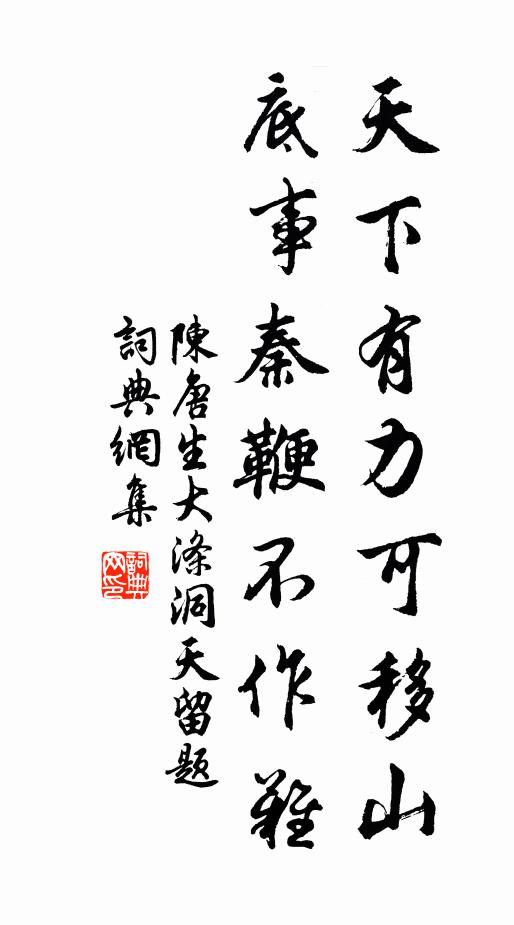 天下有力可移山
底事秦鞭不作難
陳唐生大滌洞天留題
詞典網集
詞典网印